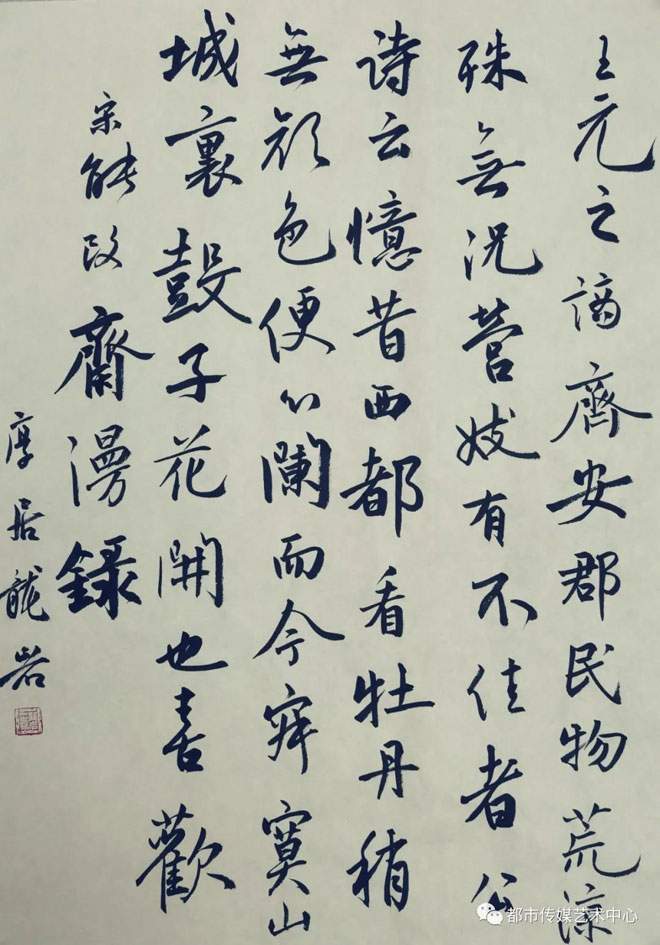 王元之谪齊安郡民物荒涼
殊無況营妓有不佳者公
诗云憶昔西都看牡丹稍
無颜色便心阑而今寂寞山
城裏鼓子花開也喜歡
宋能改齋漫錄
厚居龍岩
都市传媒艺术中心